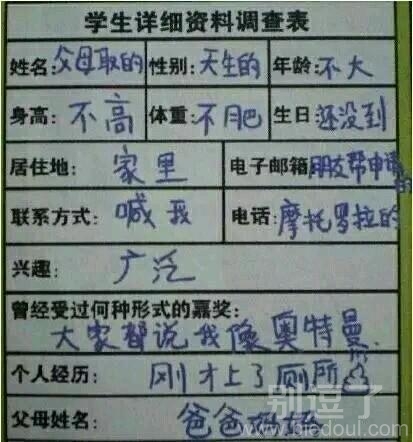 学生详细资料调查表
姓名:父母取的 性别:天生的 年龄:不大
身高:不高 体重:不肥 生日:还没到
居住地:家里 电子邮箱朋友帮申请的
联系方式:喊我 电话:摩托罗拉的
兴趣:广泛
曾经受过何种形式的嘉奖:
大家都说我像奥特曼
个人经历:刚才上了厕所
父母姓名:爸爸妈妈
别逗了
www.biedoul.com